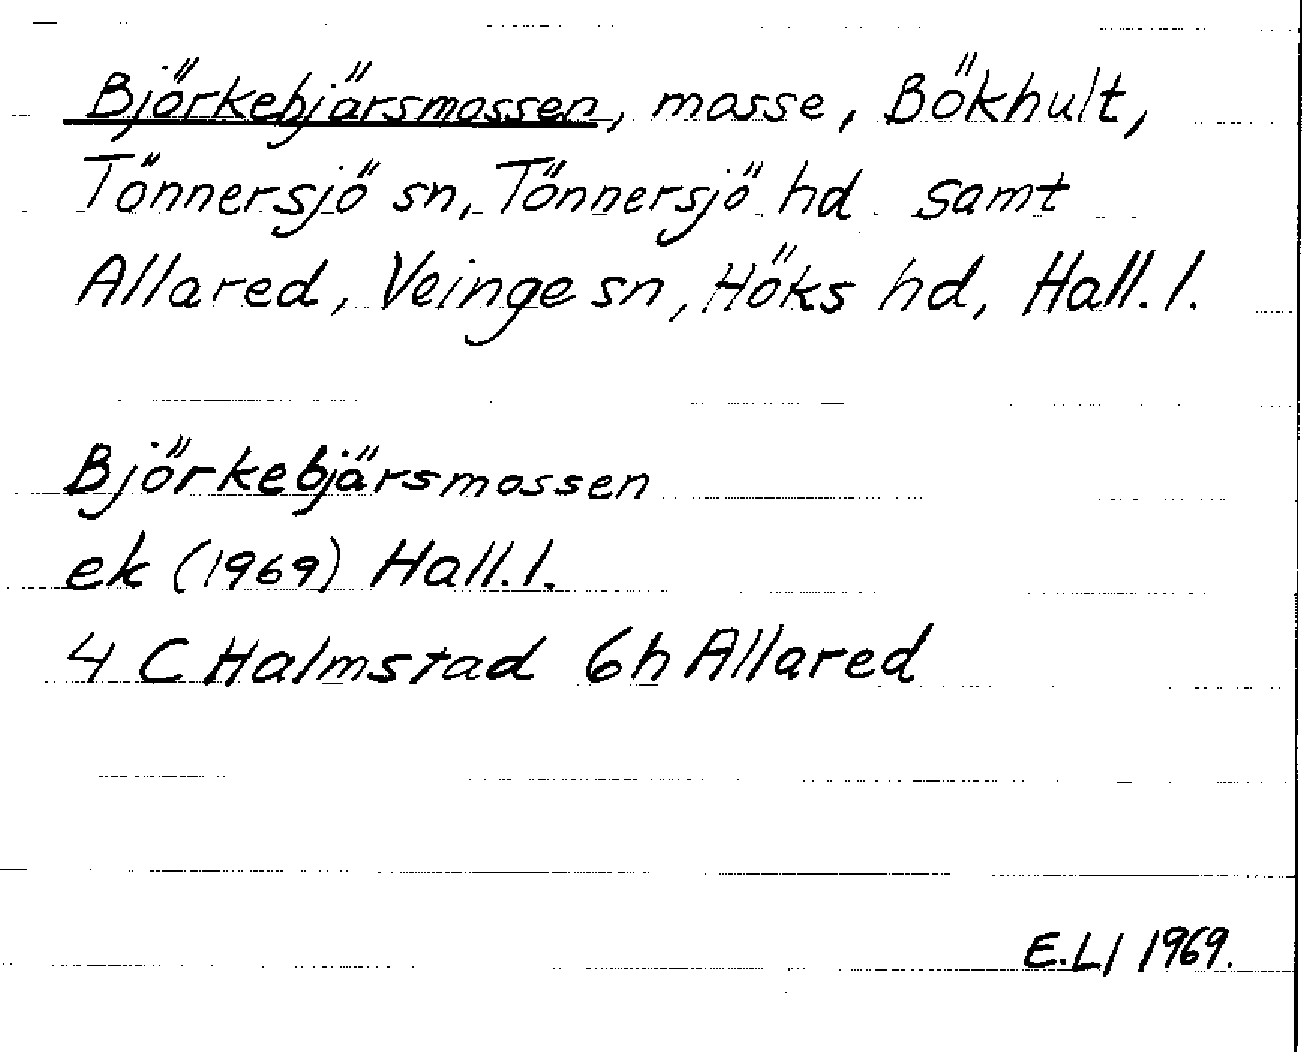 Björkebjärsmossen, mosse, Bökhult,
Tönnersjö sn, Tönnersjö hd samt
Allared, Veinge sn, Höks hd, Hall. l.
Björkebjärsmossen
ek (1969) Hall. l.
4 C Halmstad 6h Allared
E.Ll 1969.